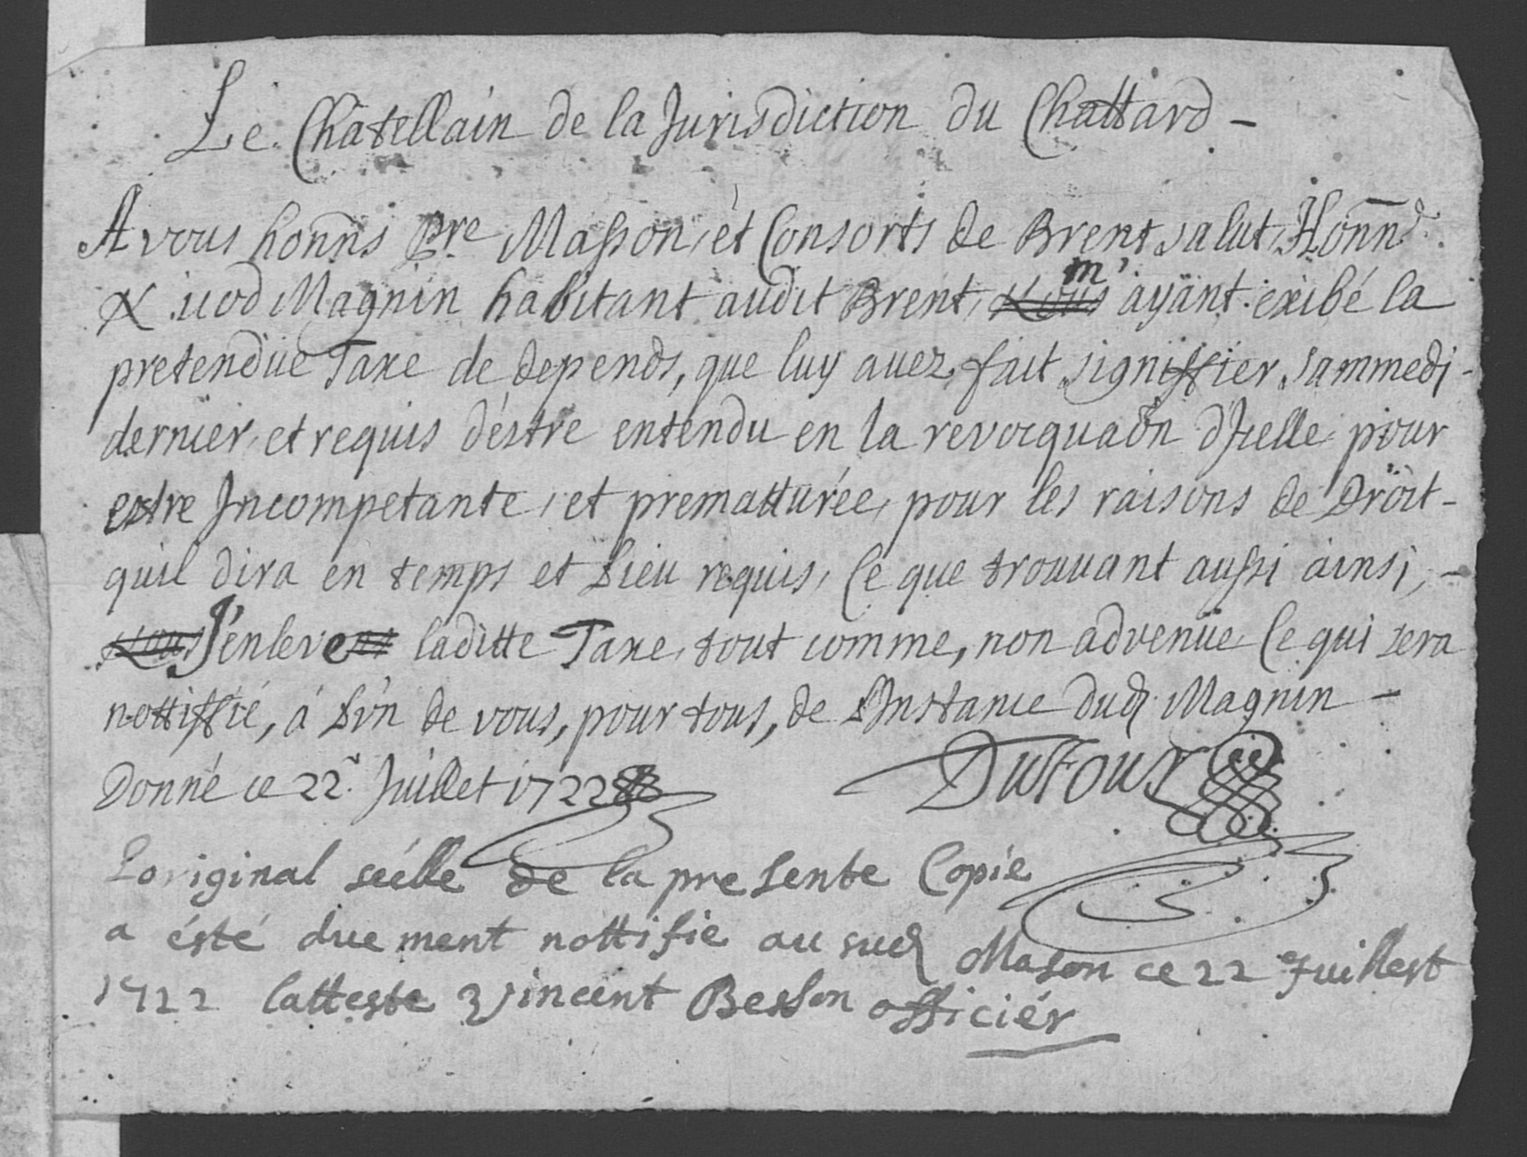 Le Châtellain de la Jurisdiction du Chattard -
A vous honns Pre Masson, et Consorts de Brent, salut, Honnd
& .uod Magnin habitant audit Brent, Nous m' ayant exibé la
pretendüe Taxe de depends, que luy avez fait signiffier sammedi -
dernier, et requis déstre entendu en la revocquaõn d'Icelle pour
estre Incompetante, et prematturée, pour les raisons de Droit -
quil dira en temps et Lieu requis, Ce que trouvant aussi ainsi, -
Nous J'enlevens laditte Taxe, tout comme, non advenüe Ce qui sera
nottiffié, á L'un de vous, pour tous, de L'Instance dud. Magnin -
Donné ce 22e. Juillet 1722
Dufour
Loriginal séelle de la presente Copie
a ésté duement nottifie au sud Mason ce 22 Juillest
1722 latteste Vincent Besson officiér